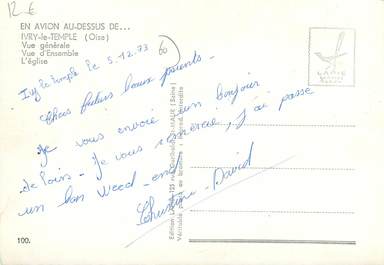 12 €
EN AVION AU-DESSUS DE...
IVRY-le-TEMPLE (Oise)
Vue générale
Vue d'Ensemble
L'église
60
Ivry le temple le 5.12.73
Chers futurs beaux parents -
Je vous envoie un bonjour
de loin - Je vous remercie, j'ai passé
un bon Weed-end
Christian - David
LAPIE
Edition LAPIE
100.